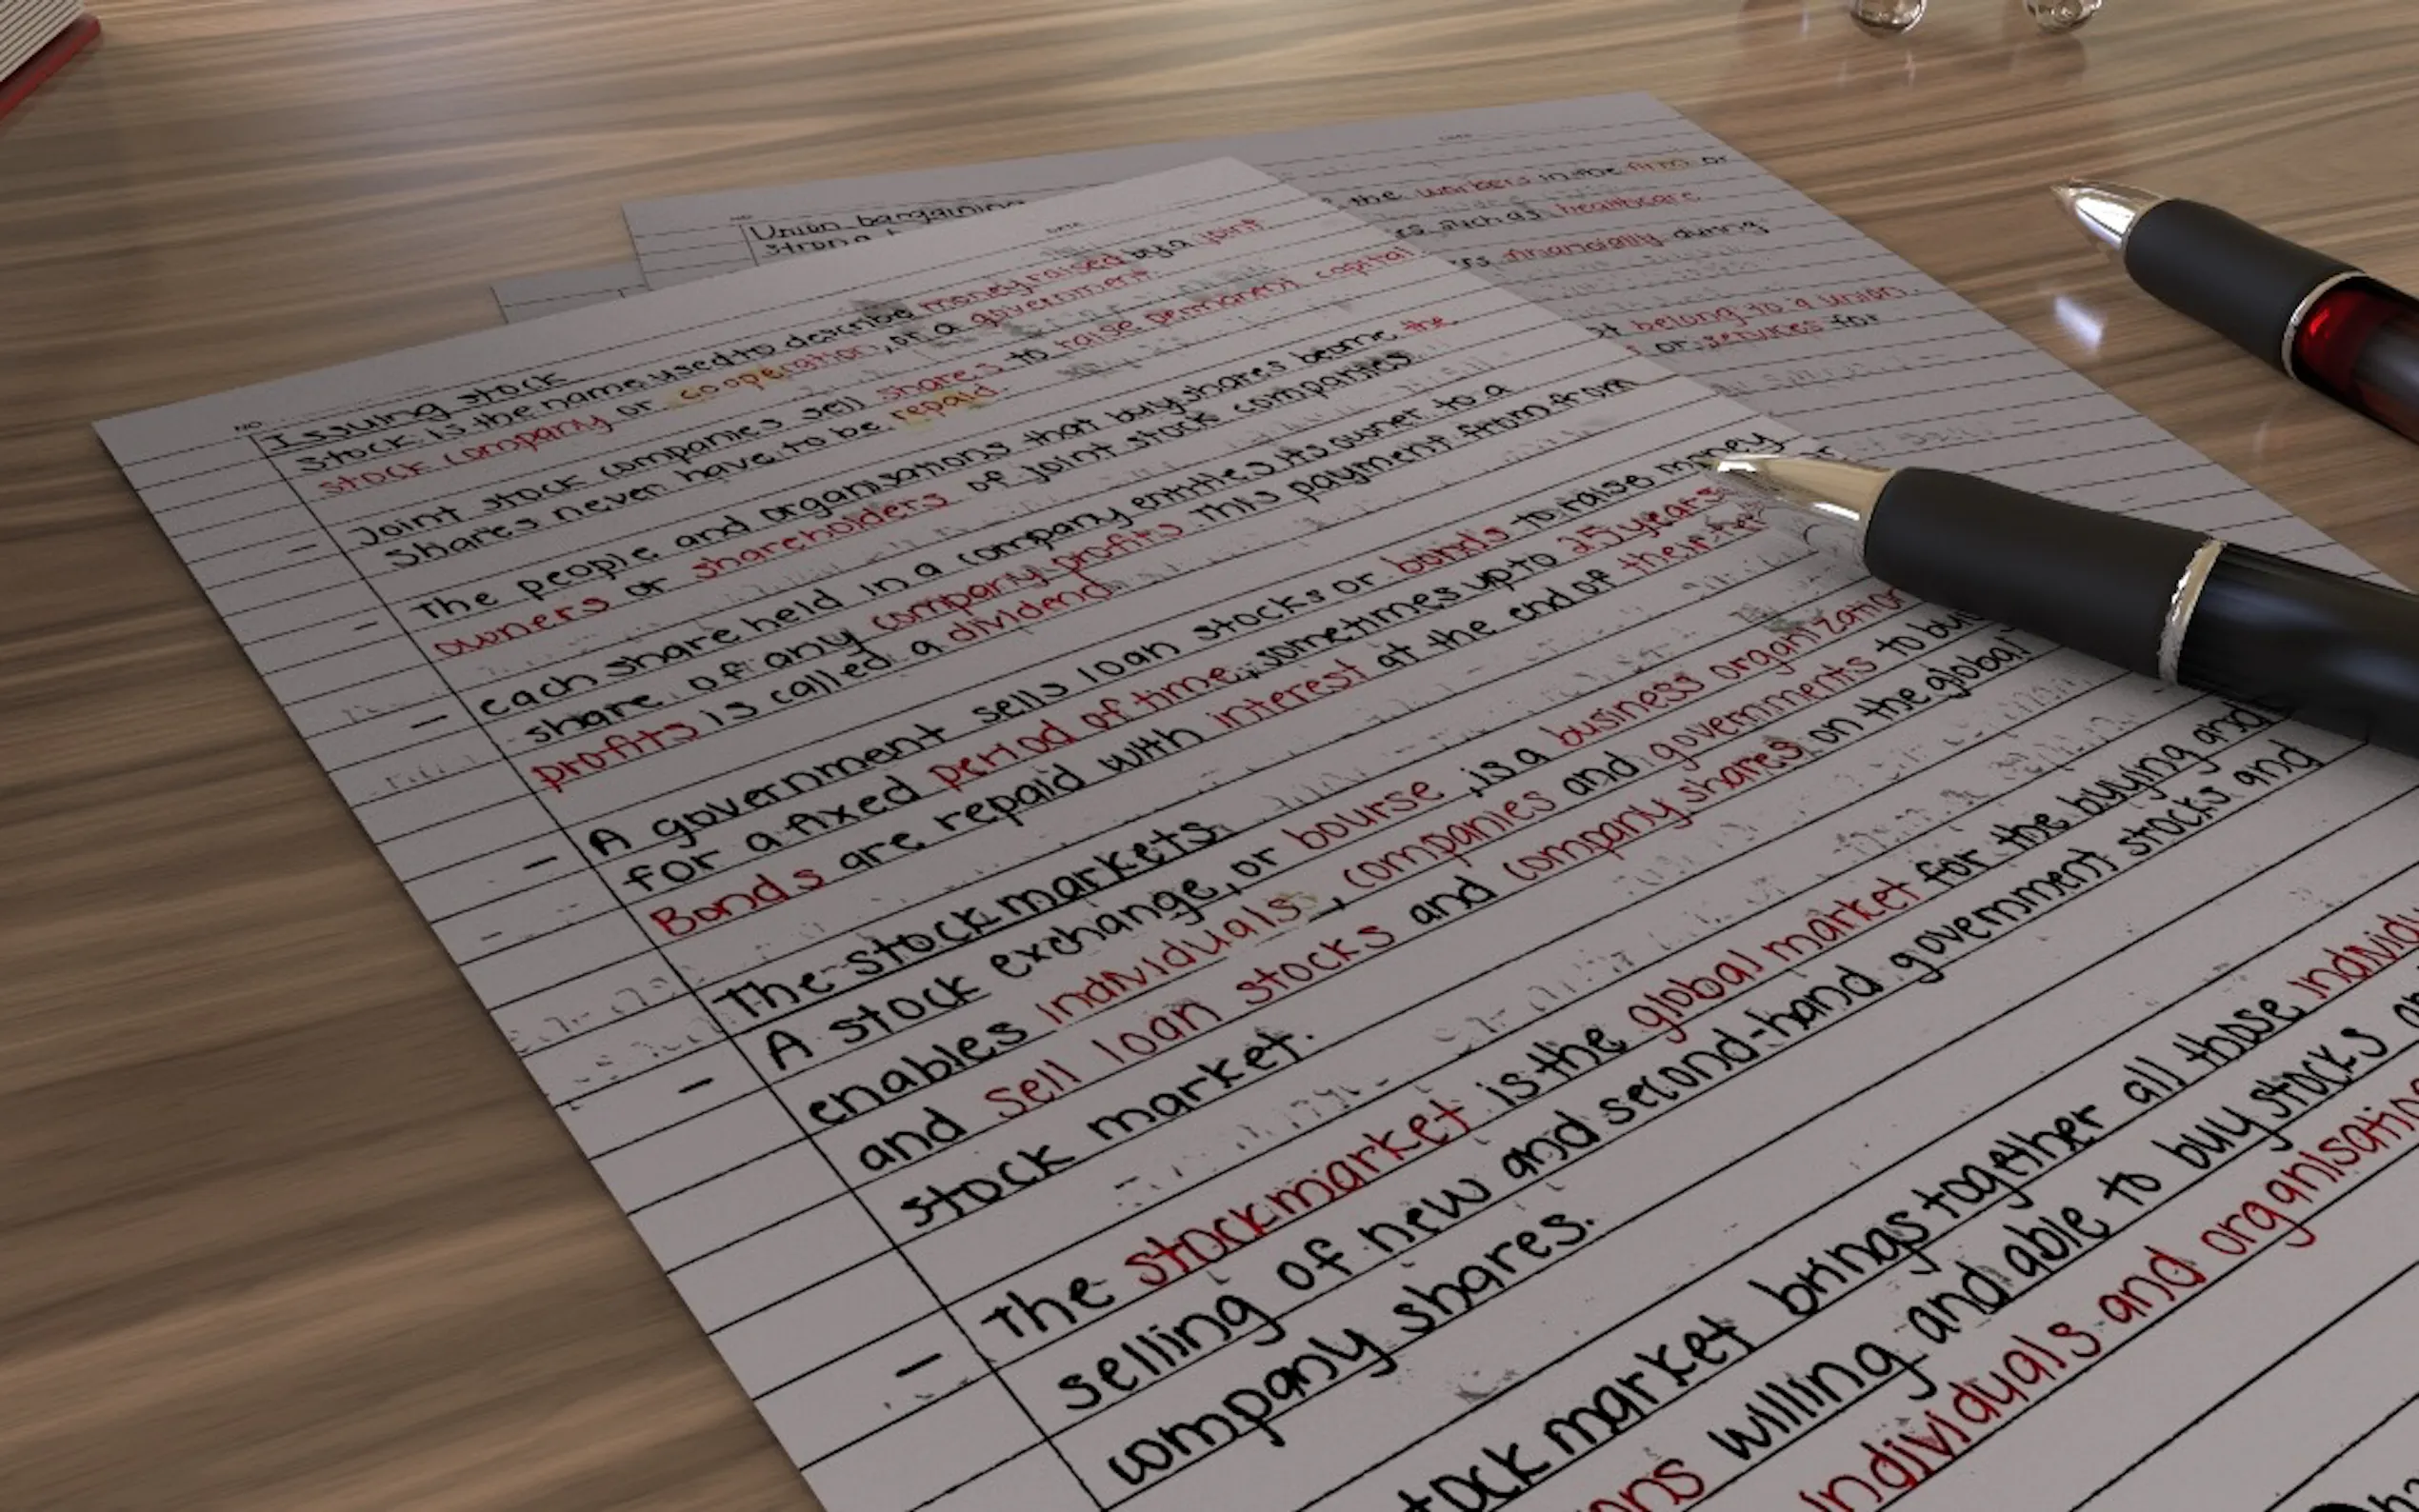 NO
DATE
Issuing stock
Stock is the name used to describe money raised by a joint
stock company or cooperation, or a government.
Joint stock companies sell shares to raise permanent capital
Shares never have to be repaid
- The people and organisations that buy shares become the
owners or shareholders of joint stock companies
- each share held in a company entitles its owner to a
share of any company profits This payment from from
profits is called a dividend.
- A government sells loan stocks or bonds to raise money
for a fixed period of time, sometimes up to 25 years
Bonds are repaid with interest at the end of their
The stock markets
- A stock exchange, or bourse, is a business organization
enables individuals, companies and governments to buy
and sell loan stocks and company shares, on the global
stock market.
- The stock market is the global market for the buying and
selling of new and second-hand government stocks and
company shares.
stock market brings together all those individu
ons willing and able to buy stocks
individuals and organisation
NO
Union bargaining
Strong
the workers in the firm or
such as healthcare
financially during
belong to a union
or services for